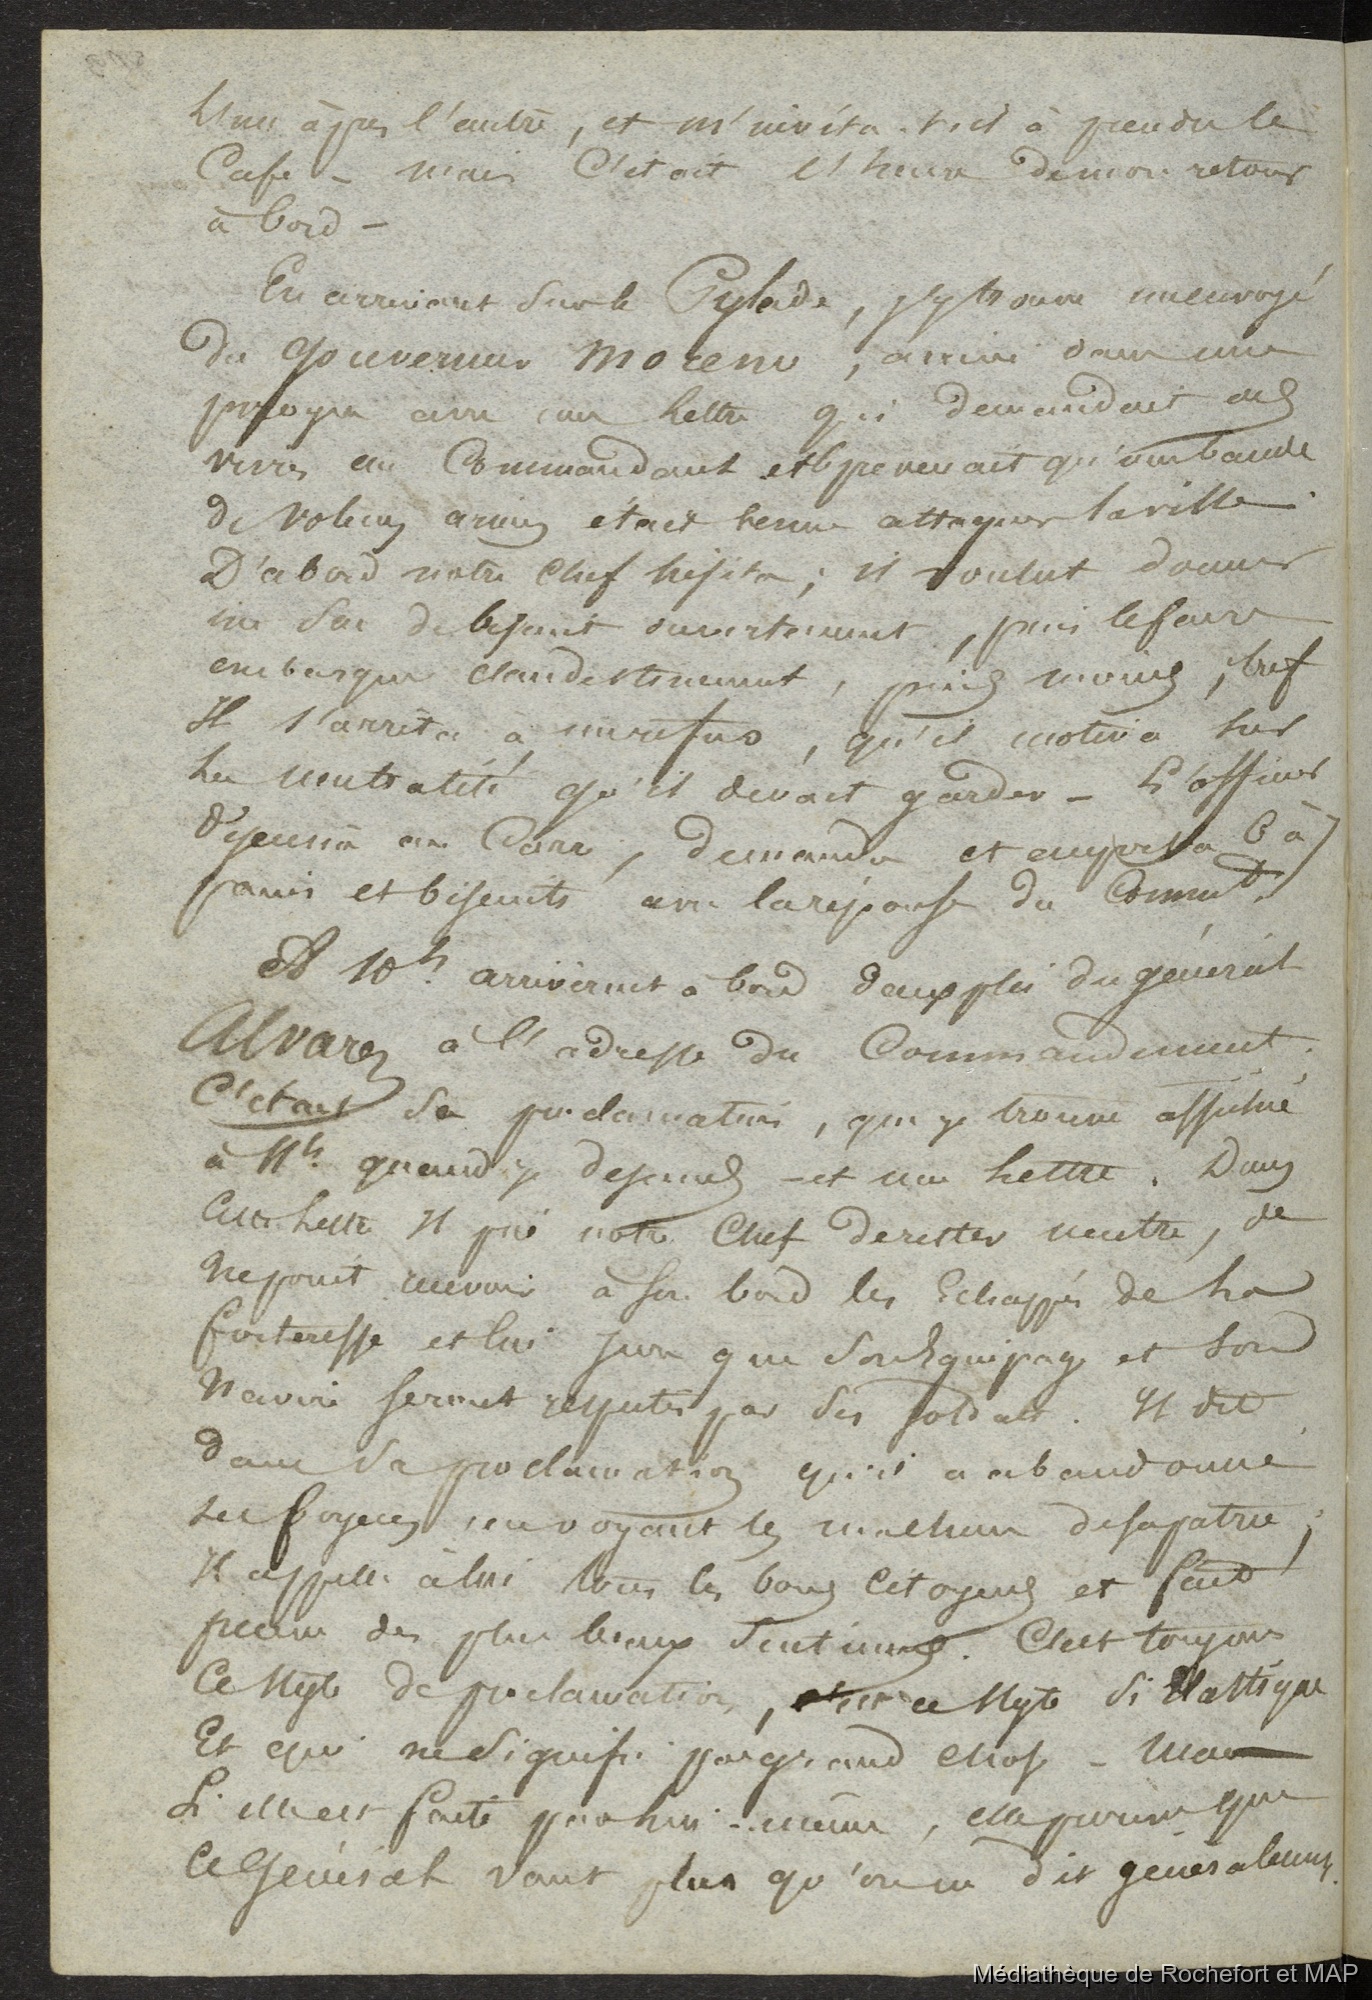 l'une après l'autre, et m'invita t-il à prendre le
Café - mais C'était l'heure de mon retour
à bord -
En arrivant sur le Pylade, j'y trouve un envoyé
du Gouverneur Moreno, arrivé dans une
pirogue avec une lettre qui demandait des
vivres au Commandant et le prevenait qu'une bande
de voleurs armés était venue attaquer la ville.
D'abord notre Chef hésita; il voulut donner
un sac de biscuit ouvertement, puis le faire
embarquer clandestinement, puis moins, bref
Il s'arrêta à un refus, qu'il motiva sur
la neutralité qu'il devait garder - L'officier
déjeuna au Carré, demanda et emporta 6 à 7
pains et biscuits avec la réponse du Commdt.
A 10h. arrivèrent à bord deux plis du général
Alvarez à l'adresse du Commandement.
C'était sa proclamation, que je trouve affiché
à 11h. quand je descends - et une lettre. Dans
Cette lettre Il prie notre Chef de rester neutre, de
ne point recevoir à son bord les Echappés de la
forteresse et lui jure que son Equipage et son
Navire seront respectés par ses soldats. Il dit
dans sa proclamation qu'il a abandonné
ses foyers en voyant les malheurs de sa patrie;
Il appelle à lui tous les bons Citoyens et fait
preuve des plus beaux sentimens. C'est toujours
Ce style de proclamation, ce style si élastique
Et qui ne signifie pas grand chose - Mais
Si elle est faite par lui-même, elle prouve que
Ce Général vaut plus qu'on ne dit généralement.
Médiathèque de Rochefort et MAP